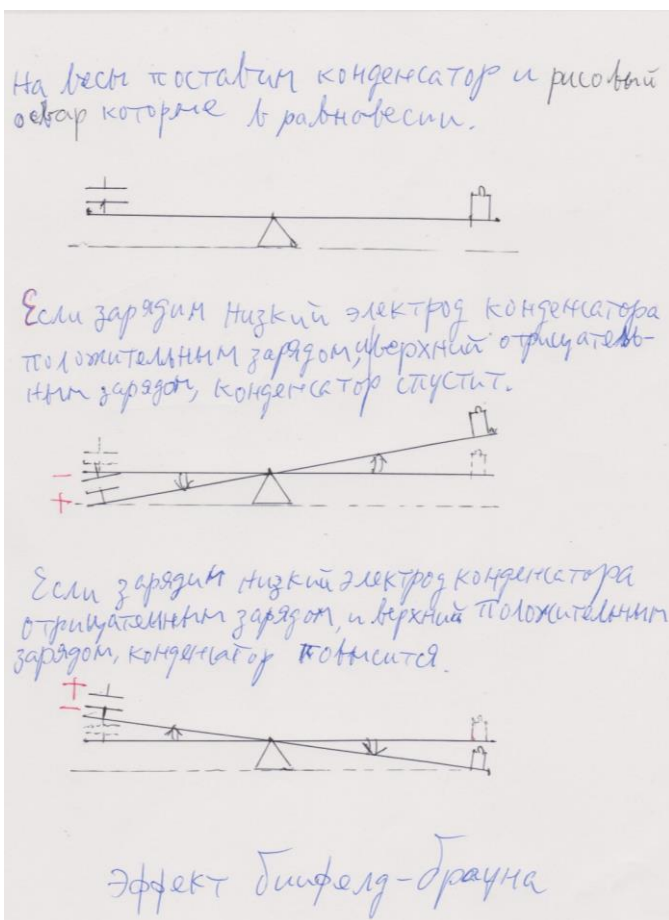 На весы поставим конденсатор и рисовый
отвар которые в равновесии.
Если зарядим низкий электрод конденсатора
положительным зарядом, и верхний отрицатель-
ным зарядом, конденсатор спустит.
−
+
Если зарядим низкий электрод конденсатора
отрицательным зарядом, и верхний положительным
зарядом, конденсатор повысится.
+
−
Эффект Биифелд-Брауна